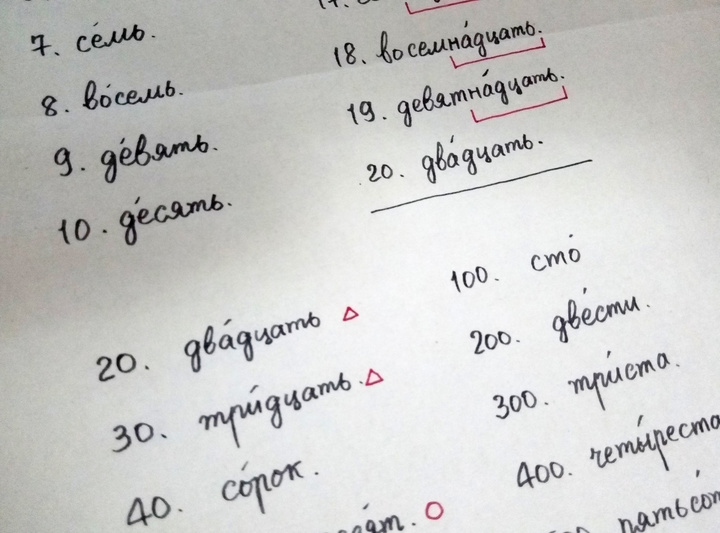 7. се́мь.
8. во́семь.
9. де́вять.
10. де́сять.
18. восемна́дцать.
19. девятна́дцать.
20. два́дцать.
20. два́дцать △
30. три́дцать. △
40. со́рок.
100. сто́
200. две́сти.
300. три́ста.
400. четы́реста